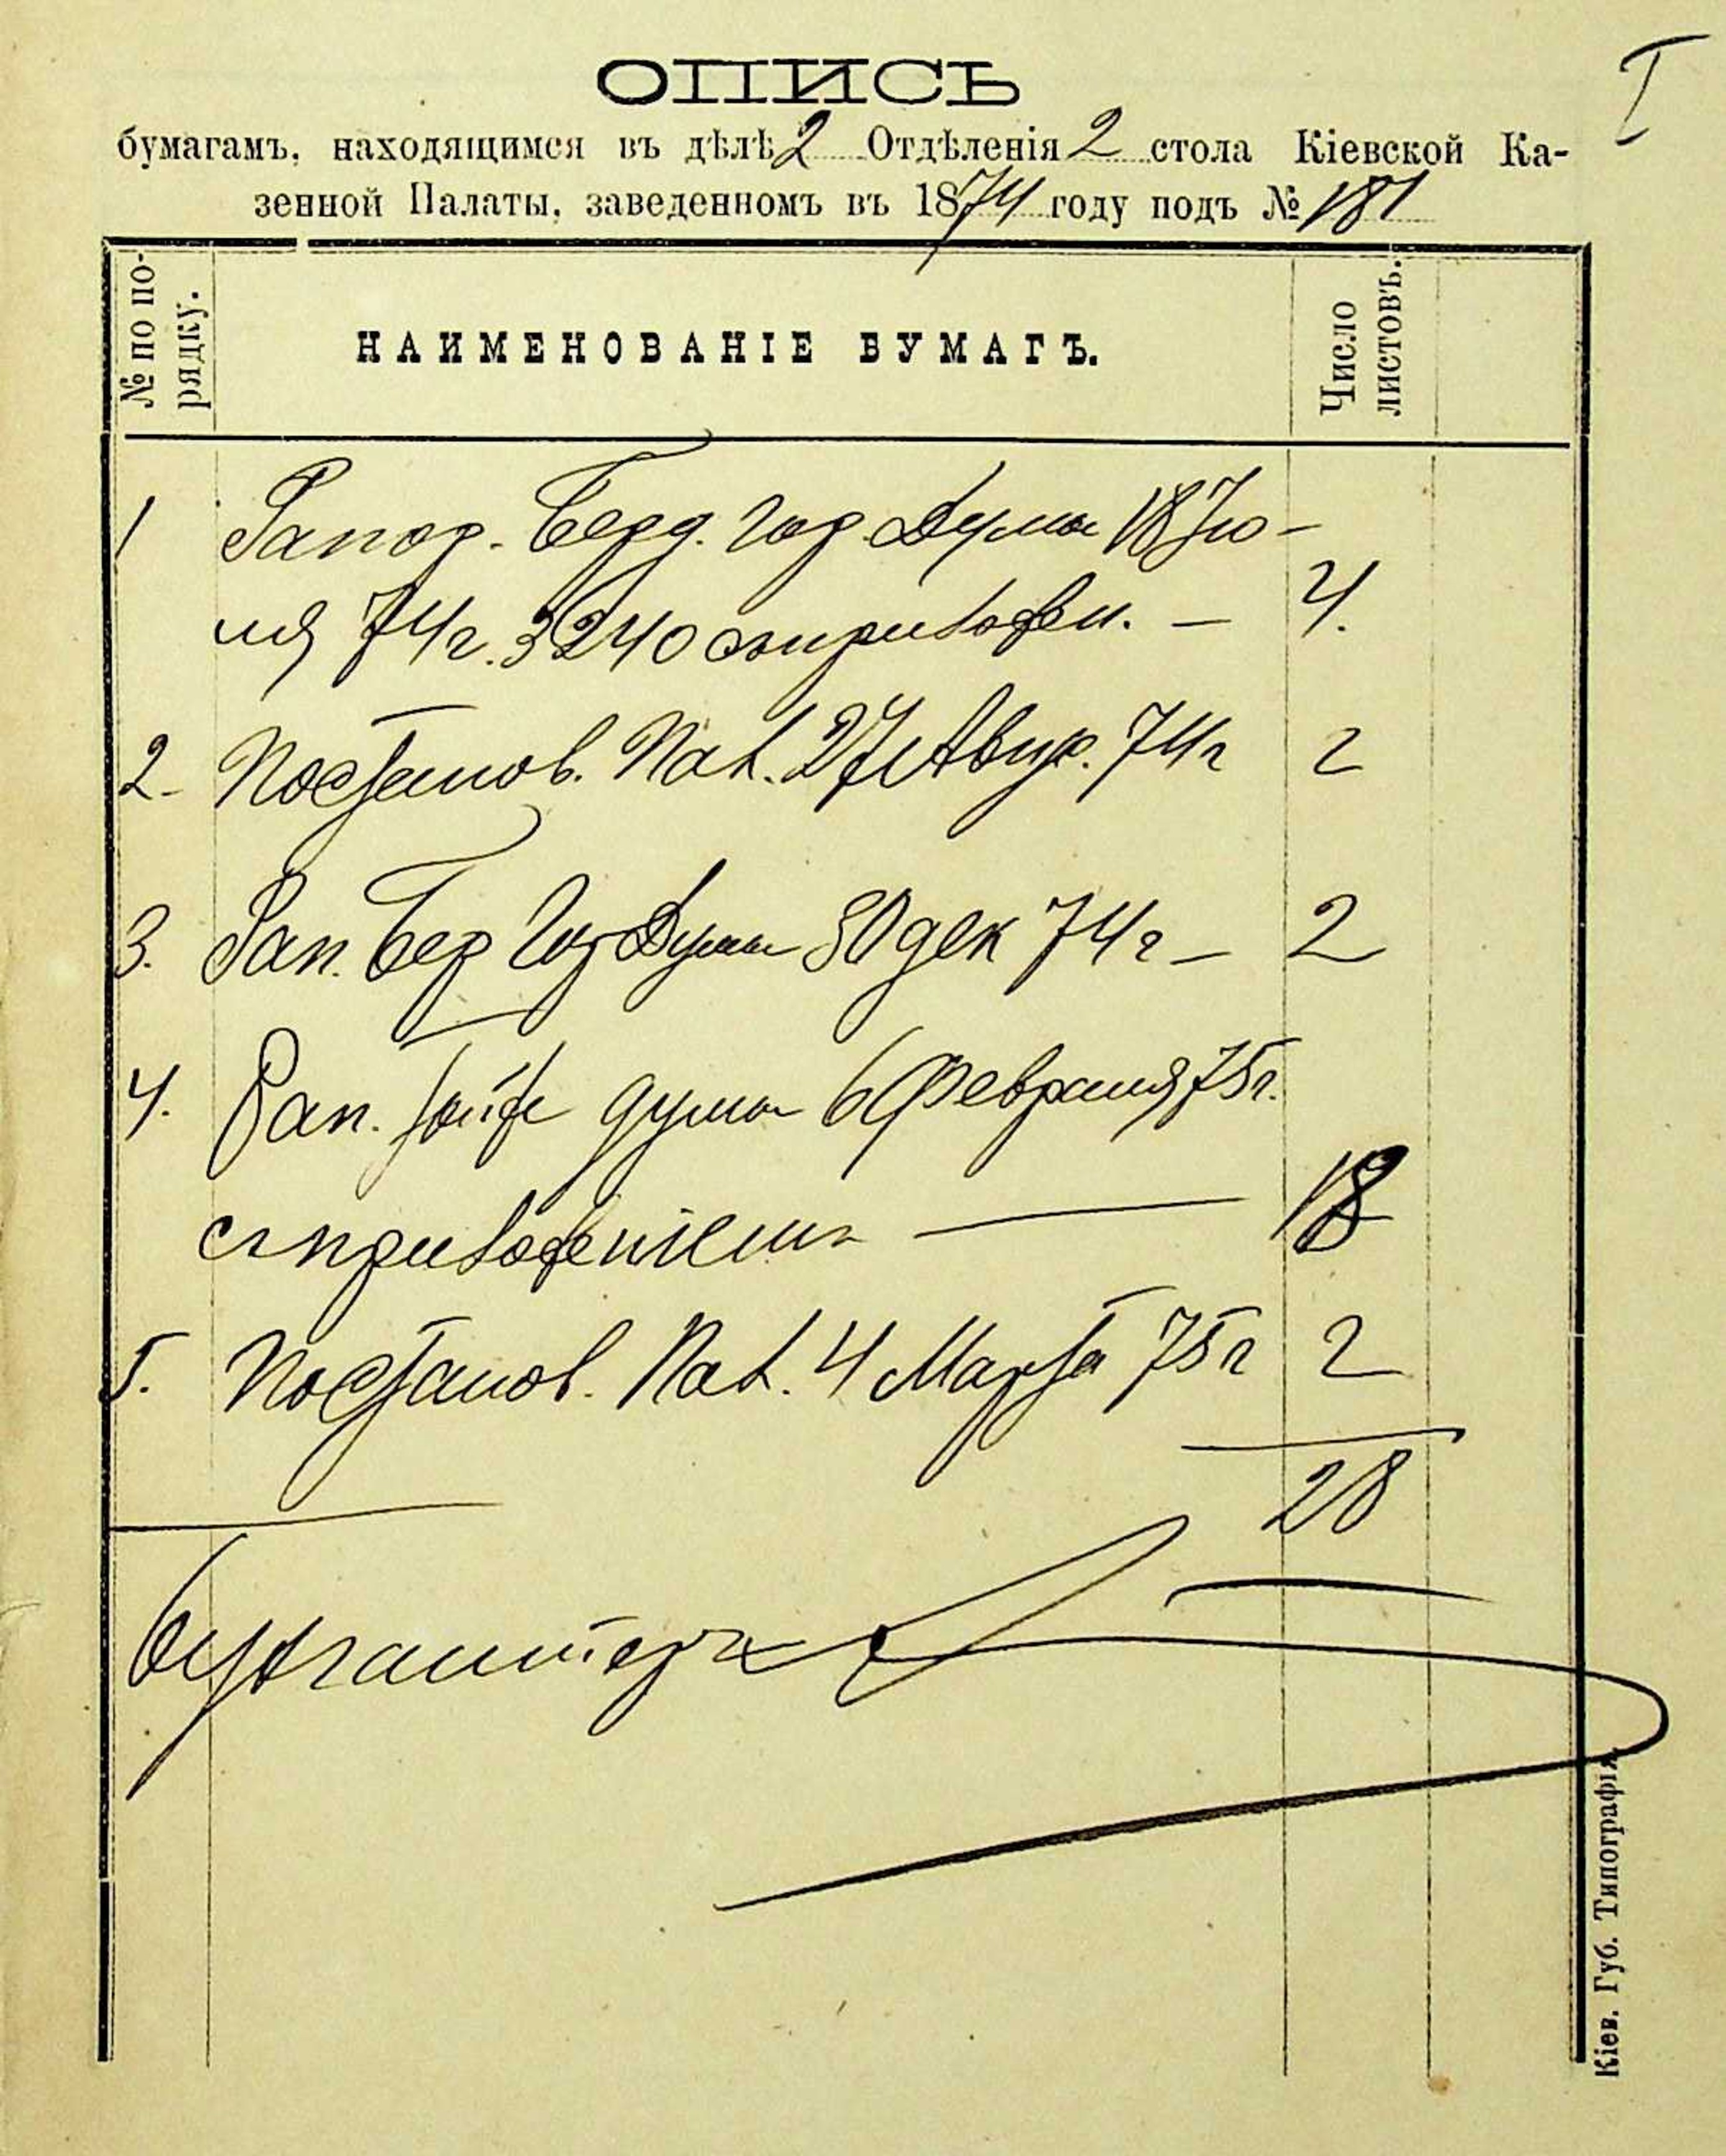 I
ОПИСЬ
бумагамъ, находящимся въ дѣлѣ 2 Отдѣленія 2 стола Кіевской Ка-
зенной Палаты, заведенномъ въ 1874 году подъ № 181
№ по по-
рядку.
НАИМЕНОВАНІЕ БУМАГЪ.
Число
листовъ.
1 Рапор. Берд. Гор. Думы 18 Ию-
ля 74 г. 3240 съ приложен. — 4.
2. Постанов. Пал. 27 Авгус. 74 г 2
3. Рап. Бер Гор Думы 30 дек 74 г — 2
4. Рап. той же думы 6 Февраля 75 г.
съ приложеніемъ — 18
5. Постанов. Пал. 4 Марта 75 г 2
28
Бухгалтеръ
Кіев. Губ. Типографія.